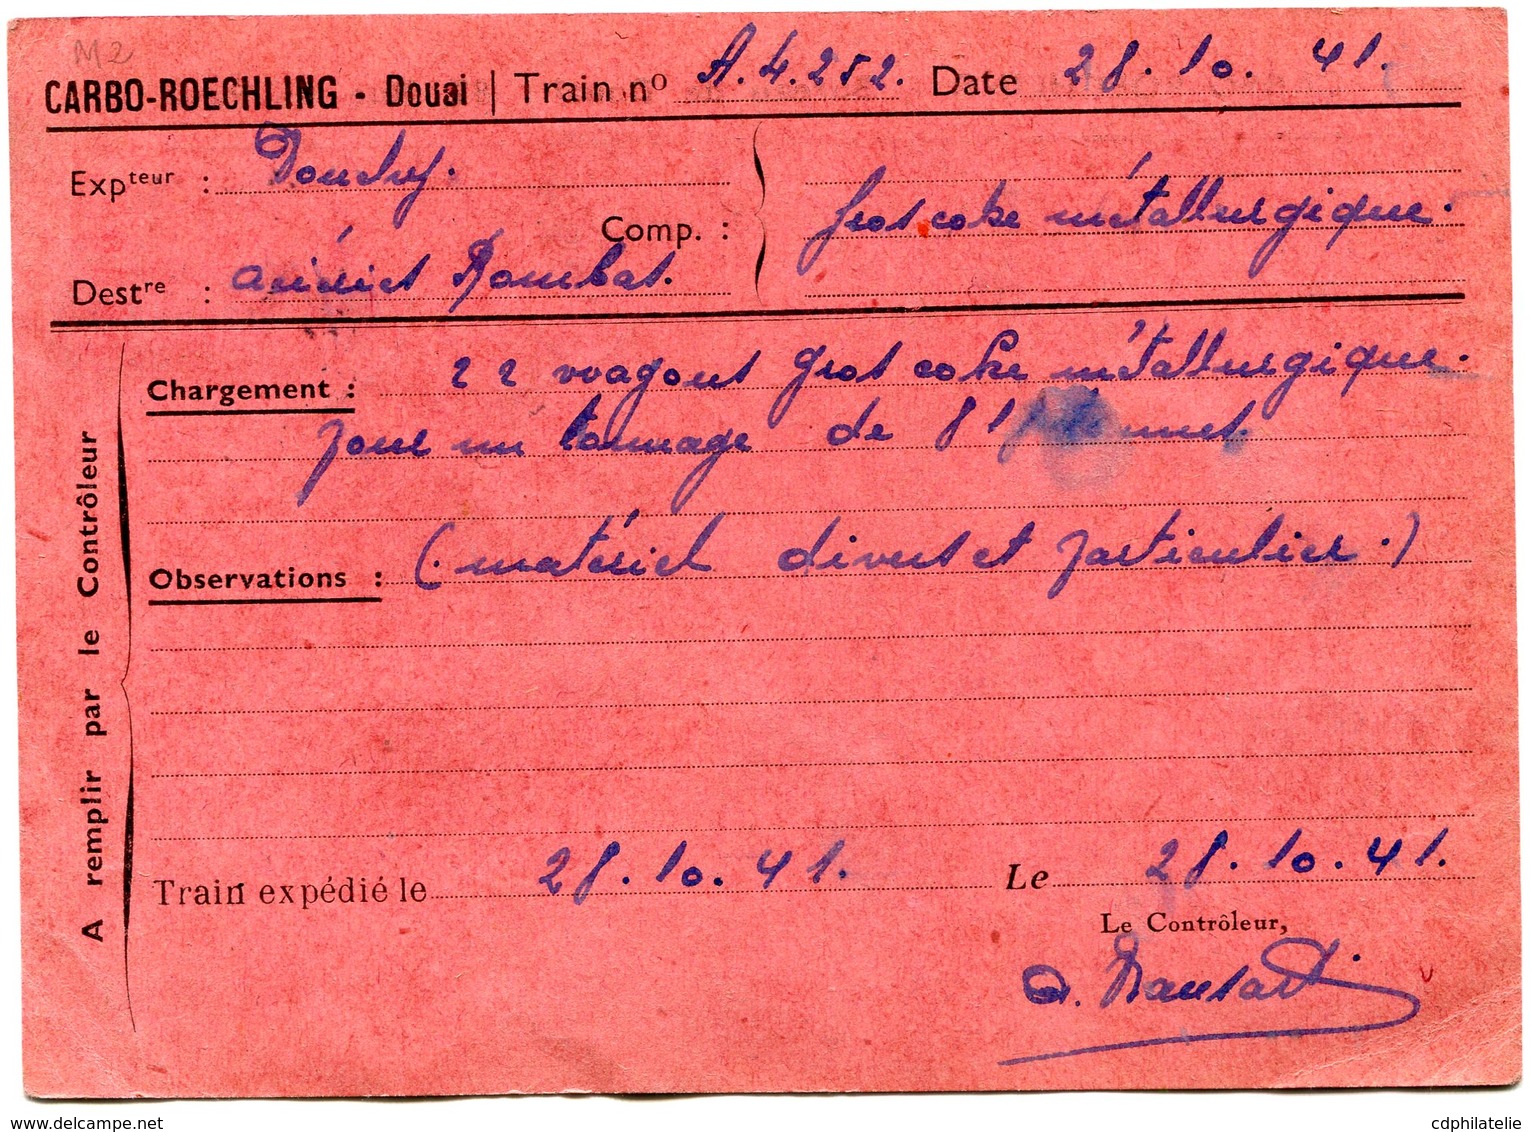 M2
CARBO-ROECHLING - Douai | Train nº A.4.252. Date 28.10.41.
Expteur : Douchy.
Comp. : gros coke métallurgique.
Destre : aciéries Rombas.
Chargement : 22 wagons gros coke métallurgique
pour un tonnage de 81
Observations : (matériel divers et particulier.)
A remplir par le Contrôleur
Train expédié le 28.10.41. Le 28.10.41.
Le Contrôleur,
www.delcampe.net
cdphilatelie